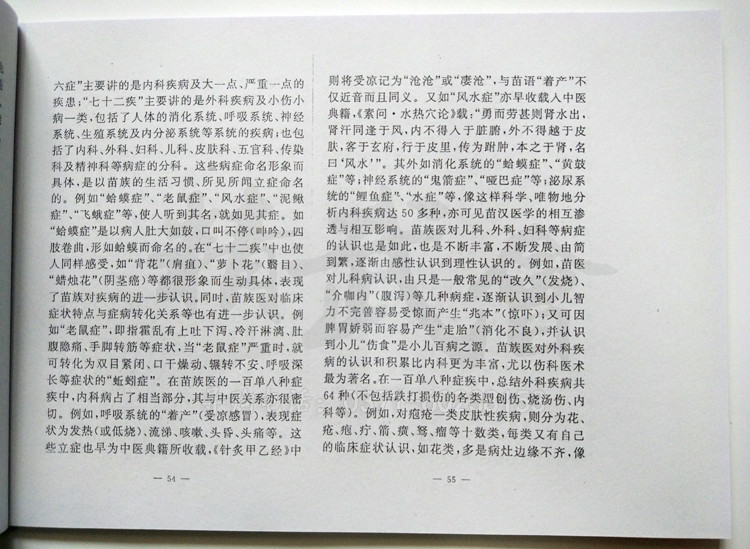 六症”主要讲的是内科疾病及大一点、严重一点的
疾患；“七十二疾”主要讲的是外科疾病及小伤小
病一类，包括了人体的消化系统、呼吸系统、神经
系统、生殖系统及内分泌系统等系统的疾病；也包
括了内科、外科、妇科、儿科、皮肤科、五官科、传染
科及精神科等病症的分科。这些病症命名形象而
具体，是以苗族的生活习惯、所见所闻立症命名
的。例如“蛤蟆症”、“老鼠症”、“风水症”、“泥鳅
症”、“飞蛾症”等，使人听到其名，就如见其症。如
“蛤蟆症”是以病人肚大如鼓，口叫不停（呻吟），四
肢卷曲，形如蛤蟆而命名的。在“七十二疾”中也使
人同样感受，如“背花”（肩疽）、“萝卜花”（翳目）、
“蜡烛花”（阴茎癌）等都很形象而生动具体，表现
了苗族对疾病的进一步认识。同时，苗族医对临床
症状特点与症病转化关系等也有进一步认识。例
如“老鼠症”，即指霍乱有上吐下泻、冷汗淋漓、肚
腹隐痛、手脚转筋等症状，当“老鼠症”严重时，就
可转化为双目紧闭、口干燥动、辗转不安、呼吸深
长等症状的“蚯蚓症”。在苗族医的一百单八种症
疾中，内科病占了相当部分，其与中医关系亦很密
切。例如，呼吸系统的“着产”（受凉感冒），表现症
状为发热（或低烧）、流涕、咳嗽、头昏、头痛等。这
些立症也早为中医典籍所收载，《针炙甲乙经》中
— 54 —
则将受凉记为“沧沧”或“凄沧”，与苗语“着产”不
仅近音而且同义。又如“风水症”亦早收载入中医
典籍，《素问·水热穴论》载：“勇而劳甚则肾水出，
肾汗同逢于风，内不得入于脏腑，外不得越于皮
肤，客于玄府，行于皮里，传为跗肿，本之于肾，名
曰‘风水’”。其外如消化系统的“蛤蟆症”、“黄鼓
症”等；神经系统的“鬼箭症”、“哑巴症”等；泌尿系
统的“鲤鱼症”、“水症”等，像这样科学、唯物地分
析内科疾病达50多种，亦可见苗汉医学的相互渗
透与相互影响。苗族医对儿科、外科、妇科等病症
的认识也是如此，也是不断丰富，不断发展、由简
到繁，逐渐由感性认识到理性认识的。例如，苗医
对儿科病认识，由只是一般常见的“改久”（发烧）、
“介咖内”（腹泻）等几种病症，逐渐认识到小儿智
力不完善容易受惊而产生“兆本”（惊吓）；又可因
脾胃娇弱而容易产生“走胎”（消化不良），并认识
到小儿“伤食”是小儿百病之源。苗族医对外科疾
病的认识和积累比内科更为丰富，尤以伤科医术
最为著名。在一百单八种症疾中，总结外科疾病共
64种（不包括跌打损伤的各类型创伤、烧汤伤、内
科等）。例如，对疱疮一类皮肤性疾病，则分为花、
疮、疱、疔、箭、癀、鹜、瘤等十数类，每类又有自己
的临床症状认识，如花类，多是病灶边缘不齐，像
— 55 —